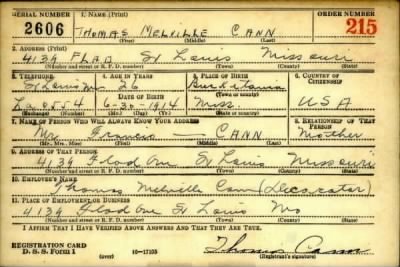 SERIAL NUMBER 1. NAME (Print) ORDER NUMBER
2606 THOMAS MELVILLE CANN 215
(First) (Middle) (Last)
2. ADDRESS (Print)
4139 FLAD St Louis Missouri
(Number and street or R. F. D. number) (Town) (County) (State)
3. TELEPHONE 4. AGE IN YEARS 5. PLACE OF BIRTH 6. COUNTRY OF CITIZENSHIP
St Louis Mo 26
DATE OF BIRTH (Town or county)
La 0554 6-30-1914 Miss. USA
(Exchange) (Number) (Mo.) (Day) (Yr.) (State or country)
7. NAME OF PERSON WHO WILL ALWAYS KNOW YOUR ADDRESS 8. RELATIONSHIP OF THAT PERSON
Mr. Francis — CANN Mother
(Mr., Mrs., Miss) (First) (Middle) (Last)
9. ADDRESS OF THAT PERSON
4139 Flad Ave St Louis Missouri
(Number and street or R. F. D. number) (Town) (County) (State)
10. EMPLOYER'S NAME
Thomas Melville Cann (Decorator)
11. PLACE OF EMPLOYMENT OR BUSINESS
4139 Flad Ave St Louis Mo
(Number and street or R. F. D. number) (Town) (County) (State)
I AFFIRM THAT I HAVE VERIFIED ABOVE ANSWERS AND THAT THEY ARE TRUE.
REGISTRATION CARD
D. S. S. Form 1 (over) 16—17105 Thomas Cann
(Registrant's signature)